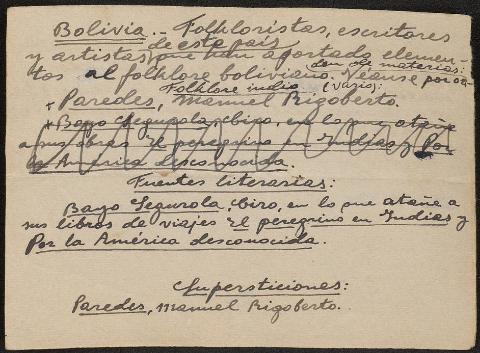 Bolivia.- Folkloristas, escritores
de este país
y artistas, que han aportado elemen-
tos al folklore boliviano. Véanse por or-
den de materias:
Folklore indio (vario):
* Paredes, Manuel Rigoberto.
* Bayo Segurola, Ciro, en lo que atañe
a sus obras El peregrino en Indias y Por
la América desconocida.
Fuentes literarias:
Bayo Segurola, Ciro, en lo que atañe a
sus libros de viajes El peregrino en Indias y
Por la América desconocida.
Supersticiones:
Paredes, Manuel Rigoberto.